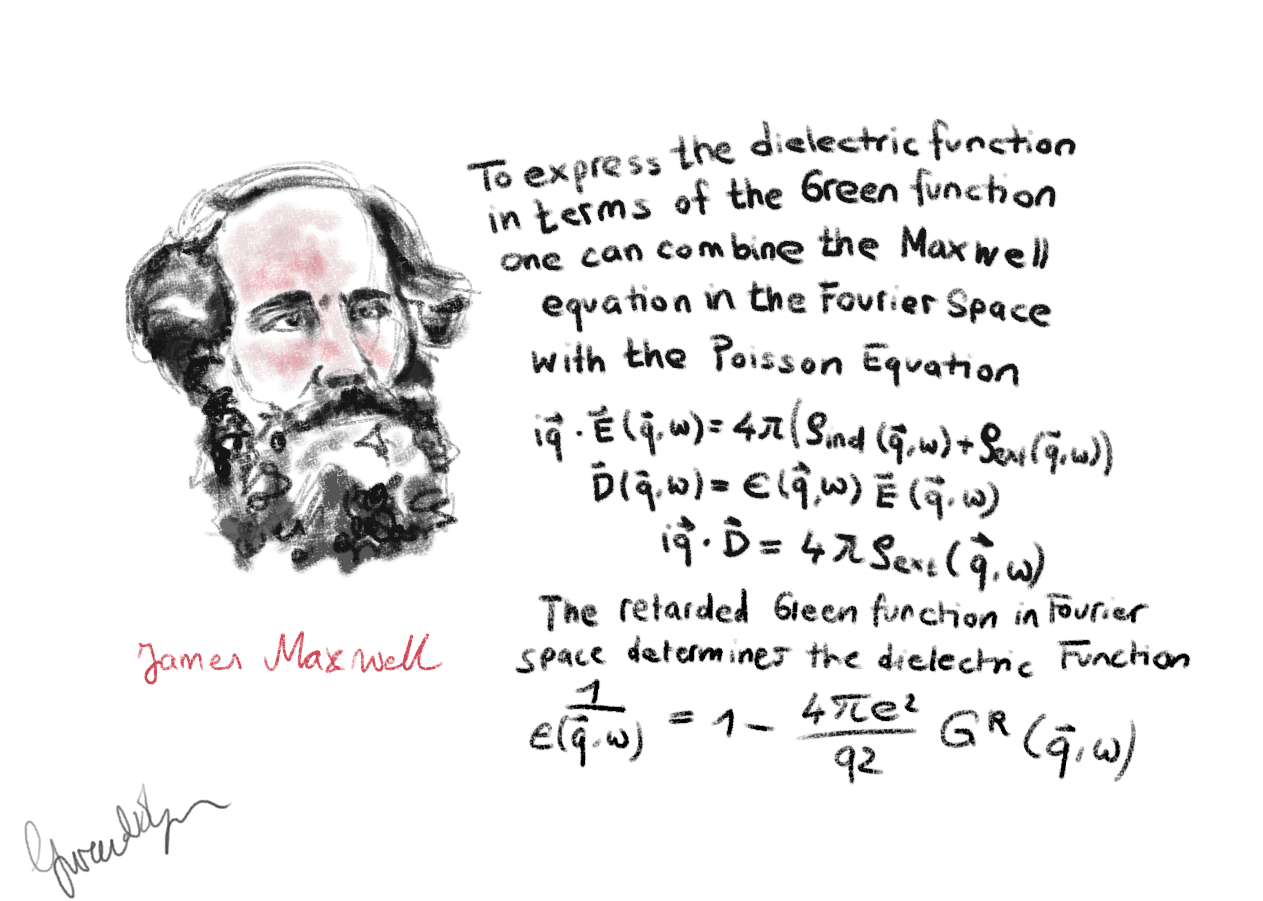 To express the dielectric function
in terms of the Green function
one can combine the Maxwell
equation in the Fourier Space
with the Poisson Equation
iq⃗ · E⃗ (q⃗,ω) = 4π(ρind (q⃗,ω) + ρext(q⃗,ω))
D⃗(q⃗,ω) = ϵ(q⃗,ω) E⃗ (q⃗,ω)
iq⃗ · D⃗ = 4πρext(q⃗,ω)
The retarded Green function in Fourier
space determines the dielectric Function
1/ϵ(q⃗,ω) = 1 - 4πe²/q2 Gᴿ (q⃗,ω)
James Maxwell